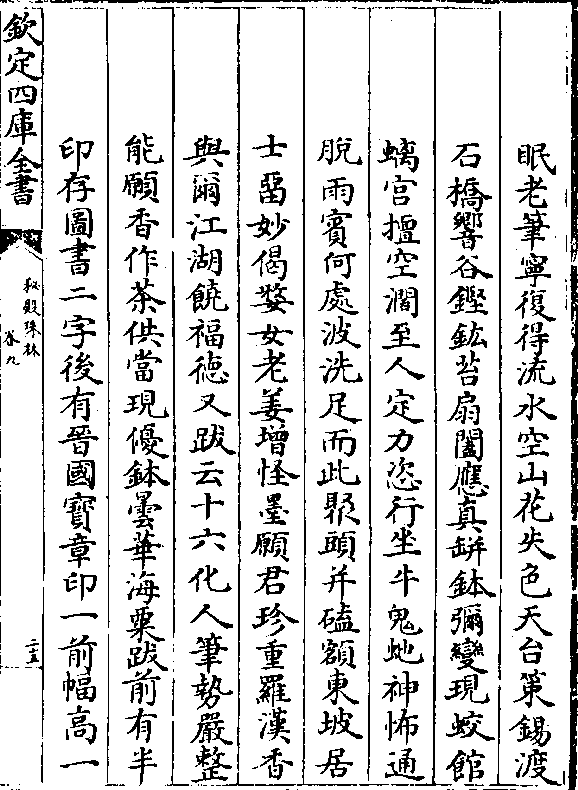 眠老筆寧復得流水空山花失色天台策錫渡
石橋響谷鏗鈜苔扇闔應真缾鉢彌變現蛟館
螭宫擅空濶至人定力恣行坐牛鬼虵神怖通
脫雨賓何處波洗足而此眾頭并磕額東坡居
士留妙偈婺女老姜增怪墨願君珍重羅漢香
與爾江湖饒福德又跋云十六化人筆勢嚴整
能願香作茶供當現優鉢曇華海粟跋前有半
印存圖書二字後有晉國寳章印一前幅高一
欽定四庫全書
秘殿珠林
卷九
二五